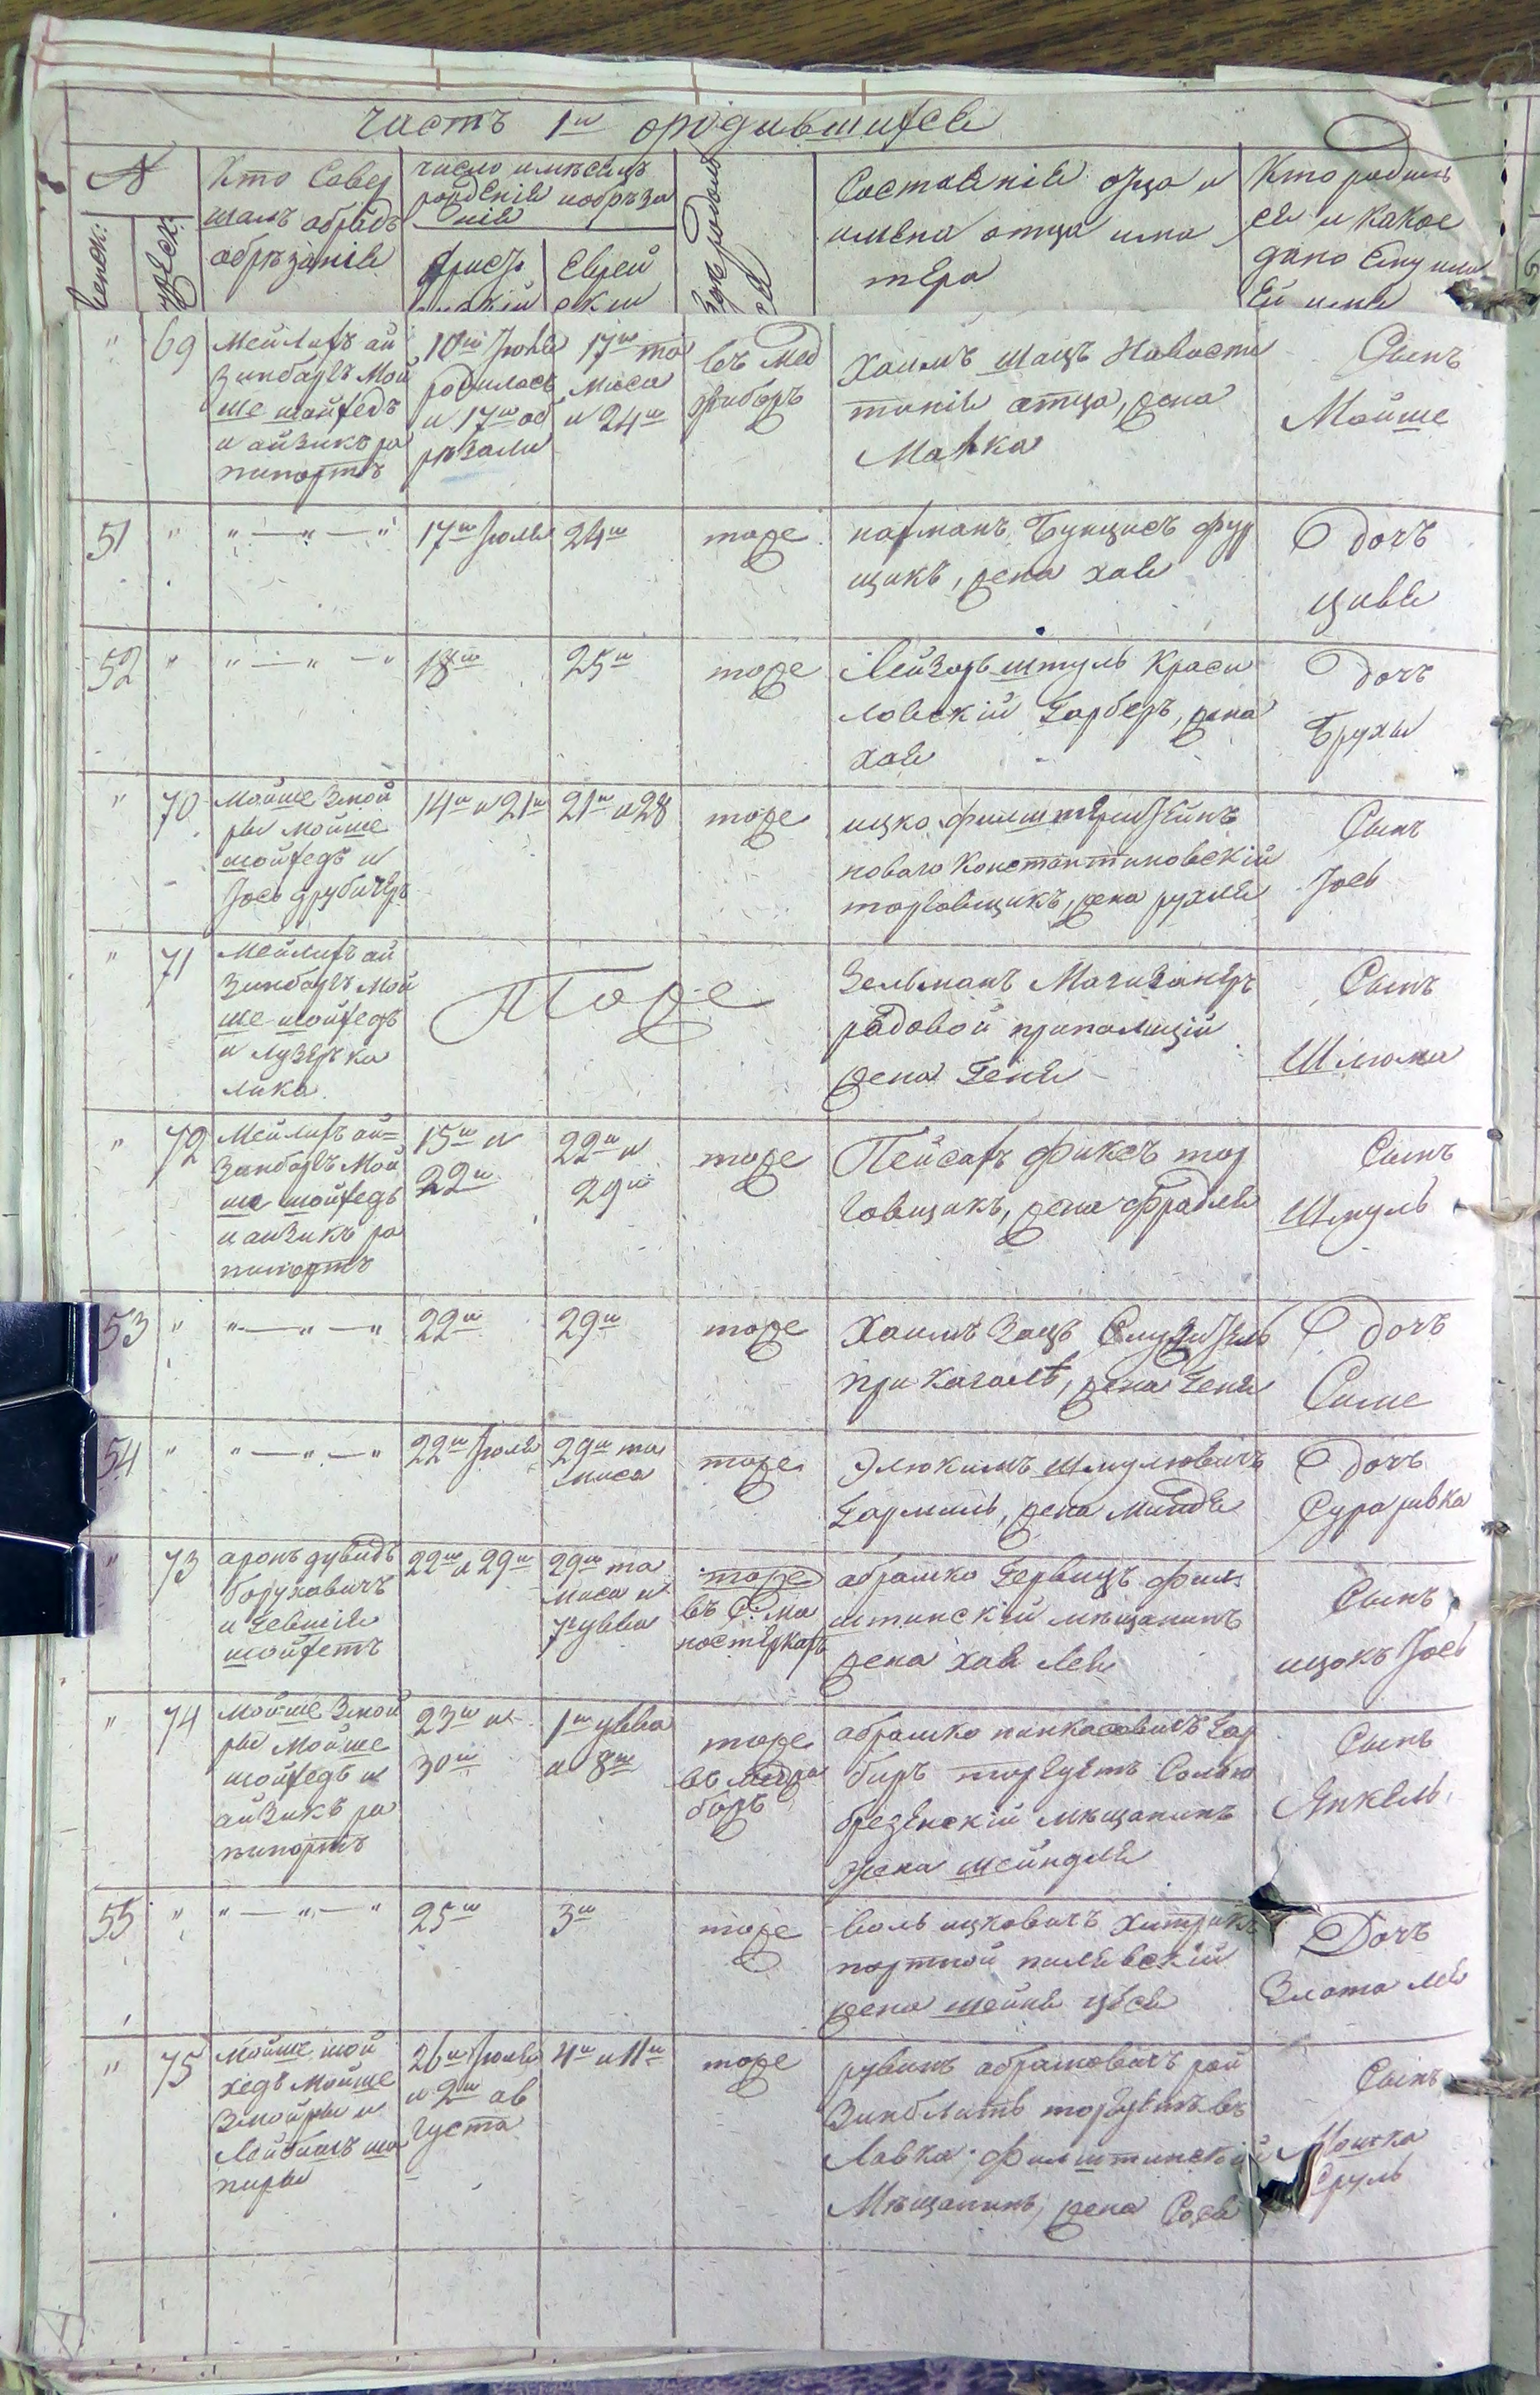 Часть 1я ородившихся
№
женск:
мужеск:
Кто Совер
шалъ обрядъ
обрѣзанія
число и мѣсяцъ
рожденія и обрѣза
нія
Христі
анскій
Еврей
скій
Гдѣ родил
ся
Состояніе отца и
имена отца и ма
тери
Кто родил
ся и какое
дано Ему или
Ей имя
" 69 Мейлихъ ай
зинбаргъ Мой
ше шойхедъ
и айзикъ ра
пипортъ
10го Іюля
родилась
и 17го об
рѣзали
17го та
муса
и 24го
въ Мед
жибожъ
Хаимъ шацъ
отца, жена
Малка
Сынъ
Мойше
51 " " — " — " 17го Іюля 24го тоже
нахманъ Бунцисъ фур
щикъ, жена хая
Дочь
цивя
52 " " — " — " 18го 25го тоже
Лейзоръ штуль Краси
ловский Гарберъ, жена
хая
Дочь
Брухы
" 70 Мойше Змой
ры Мойше
шойхедъ и
Іось друбичеръ
14го и 21го 21го и 28 тоже
ицко
новаго Константиновскій
торговщикъ, жена рухля
Сынъ
Іось
" 71 Мейлихъ ай
зинбаргъ Мой
ше шойхедъ
и лузеръ ка
лика
Тоже
Зельманъ Магизанеръ
рядовой приполиціи
жена Геня
Сынъ
Шлюма
" 72 Мейлихъ ай=
зинбаргъ Мой
ше шойхедъ
и айзикъ ра
пипортъ
15го и
22го
22го и
29го
тоже
Пейсахъ Фиксъ тор
говщикъ, жена Фрадля
Сынъ
Шмуль
53 " " — " — " 22го 29го тоже
Хаимъ Зацъ Служитель
при Кагалѣ, жена Геня
Дочь
Симе
54 " " — " — " 22го Іюля 29го та
муса
тоже
Элюкимъ Шмулювичъ
Гармиль, жена миндя
Дочь
Сура ривка
" 73 аронъ дувидъ
Боруховичъ
и Гевшія
шойхетъ
22го и 29го 29го та
муса и
7гo увва
тоже
въ С. Мо
настѣркахъ
абрамко Гервицъ Фили
штинскій мѣщанинъ
жена хая лея
Сынъ
ицокъ Іось
" 74 Мойше Змой
ры Мойше
шойхедъ и
айзикъ ра
пипортъ
23го и
30го
1го увва
и 8го
тоже
въ Межи
божъ
абрамко пинкасовичъ Гар
биръ торгуетъ Солью
брезенскій мѣщанинъ
жена шейндля
Сынъ
Янкель
55 " " — " — " 25го 3го тоже
воль ицковичъ Хитрикъ
портной пилявскій
жена шейня цѣся
Дочь
Злата лея
" 75 Мойше шой
хедъ Мойше
Змойры и
Лейбишъ ша
пиры
26го Іюля
и 2го ав
густа
4го и 11го тоже
рувинъ абрамовичъ рой
зинблатъ торгуетъ въ
лавка филштинской
Мѣщанинъ, жена Сося
Сынъ
Мошка
Сруль